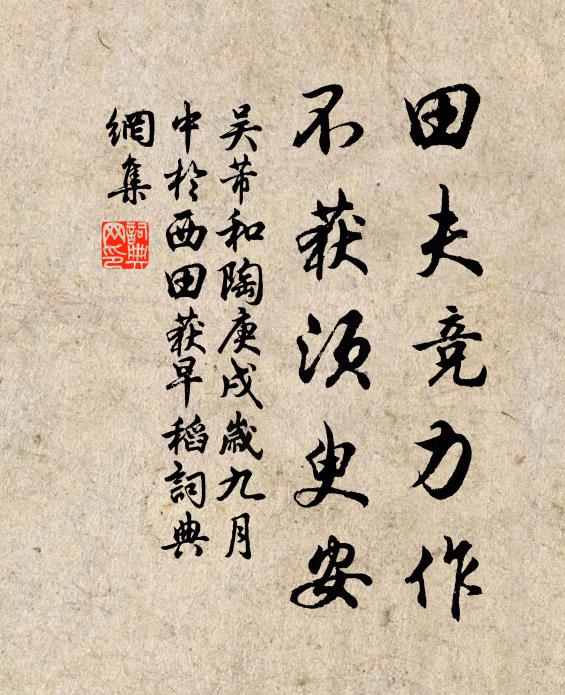 田夫竞力作
不获须臾安
吴芾和陶庚戌岁九月
中於西田获早稻詞典
網集
詞典网印